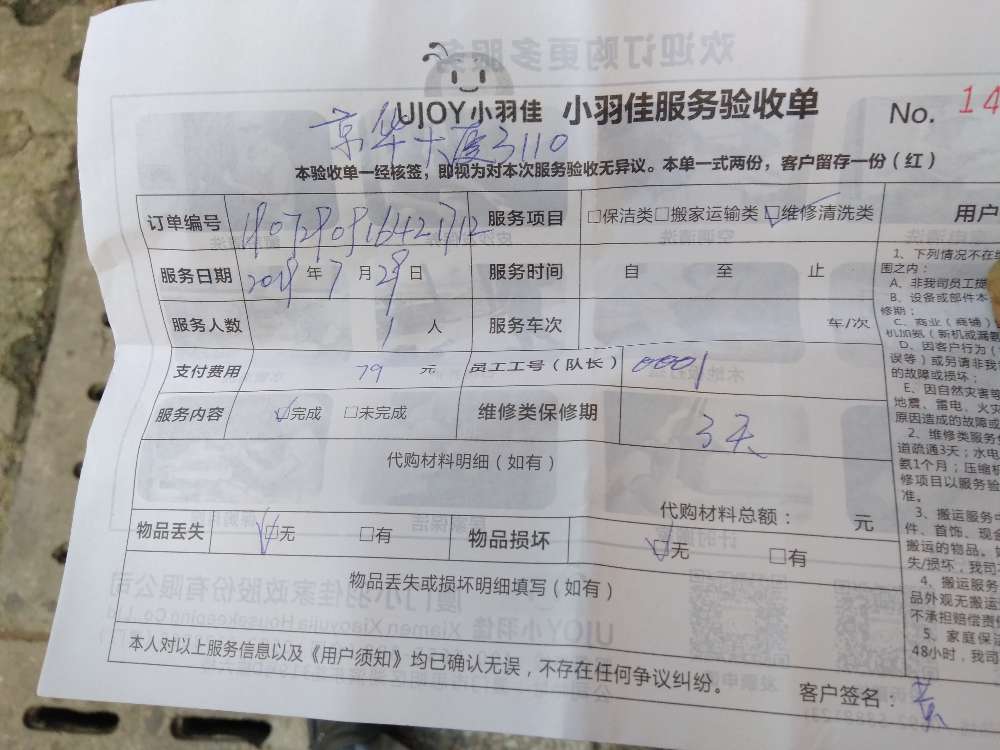 UJOY小羽佳 小羽佳服务验收单 No. 14
京华大厦3110
本验收单一经核签，即视为对本次服务验收无异议。本单一式两份，客户留存一份（红）
订单编号 服务项目 □保洁类□搬家运输类☑维修清洗类
服务日期 年 7 月 29 日 服务时间 自 至 止
服务人数 1 人 服务车次 车/次
支付费用 79 元 员工工号（队长） 0001
服务内容 ☑完成 □未完成 维修类保修期 3天
代购材料明细（如有）
代购材料总额： 元
物品丢失 ☑无 □有 物品损坏 ☑无 □有
物品丢失或损坏明细填写（如有）
本人对以上服务信息以及《用户须知》均已确认无误，不存在任何争议纠纷。
客户签名：
用户
1、下列情况不在维
围之内：
A、非我司员工提
B、设备或部件本
修期；
C、商业（商铺）
机加氨（新机或漏氨
D、因客户行为（
误等）或另请非我
的故障或损坏；
E、因自然灾害等
地震、雷电、火灾
原因造成的故障或
2、维修类服务
道疏通3天；水电
氨1个月；压缩机
修项目以服务验
准。
3、搬运服务
件、首饰、现金
搬运的物品。
失/损坏，我司
4、搬运服务
品外观无搬运
不承担赔偿责
5、家庭保
48小时，我司